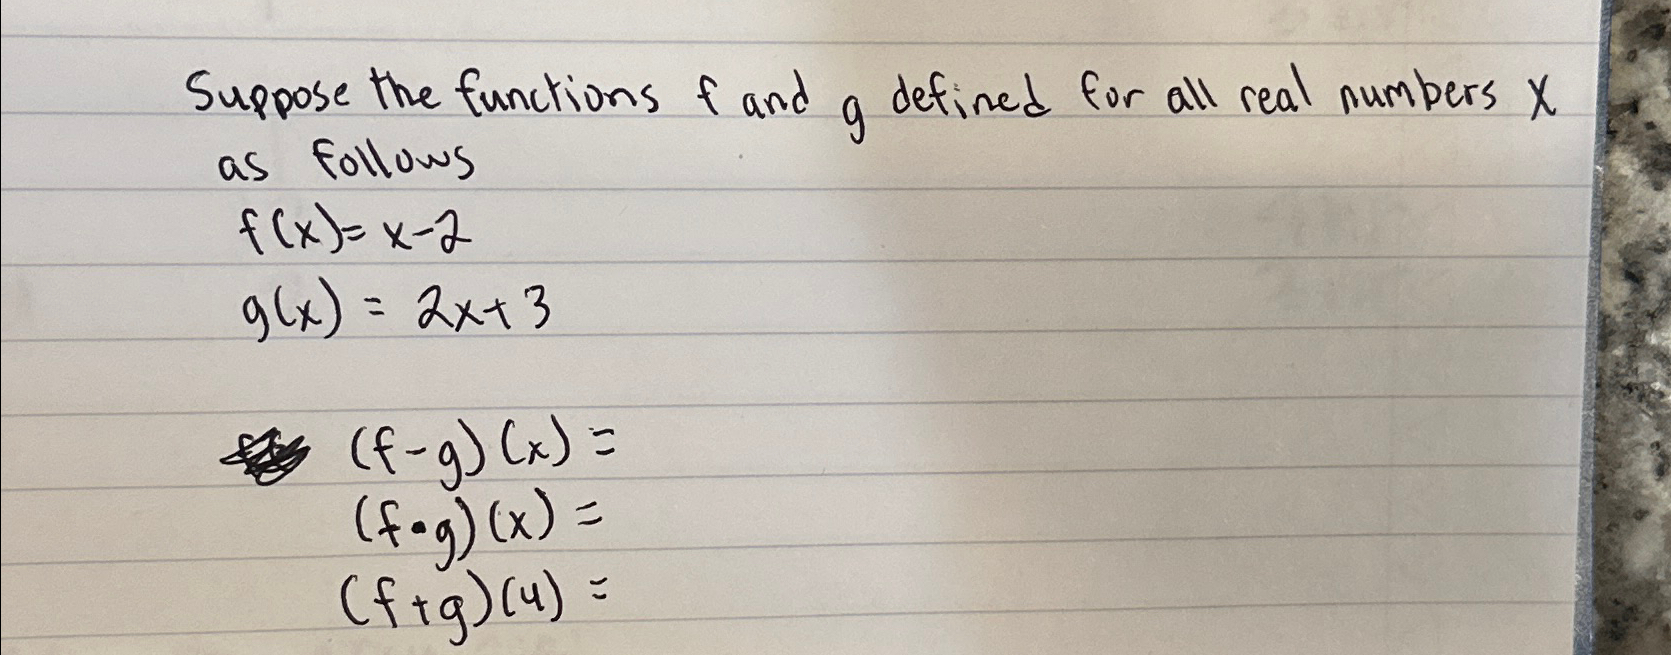 Suppose the functions f and g defined for all real numbers x
as follows
f(x)= x-2
g(x) = 2x+3
(f-g)(x) =
(f•g)(x) =
(f+g)(4) =